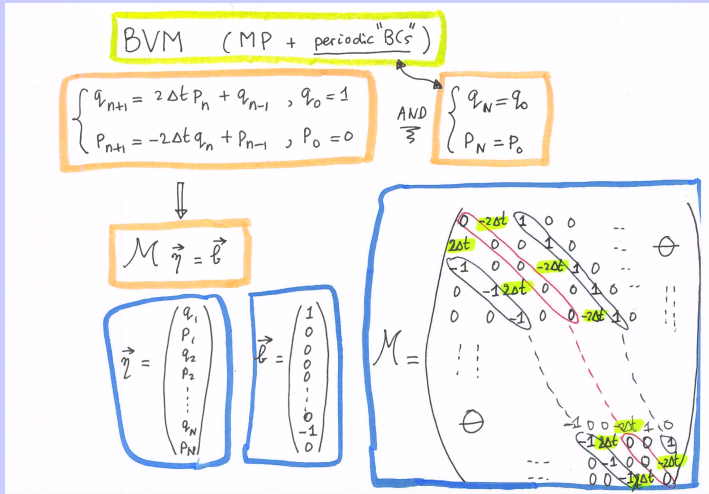 BVM (MP + periodic "BCs")
q_{n+1} = 2Δt P_n + q_{n-1} , q_0 = 1
P_{n+1} = -2Δt q_n + P_{n-1} , P_0 = 0
AND
q_N = q_0
P_N = P_0
⇓
M η⃗ = b⃗
η⃗ = ( q_1 P_1 q_2 P_2 ⋮ q_N P_N )
b⃗ = ( 1 0 0 0 0 ⋮ 0 -1 0 )
M =
0 -2Δt 1 0 0 -- Θ
2Δt 0 0 1 0 --
-1 0 0 -2Δt 1 0 --
0 -1 2Δt 0 0 1 0 --
0 0 -1 0 0 -2Δt 1 0
Θ -1 0 0 -2Δt 1 0
-1 2Δt 0 0 1
--- 0 -1 0 0 -2Δt
-- 0 0 -1 2Δt 0